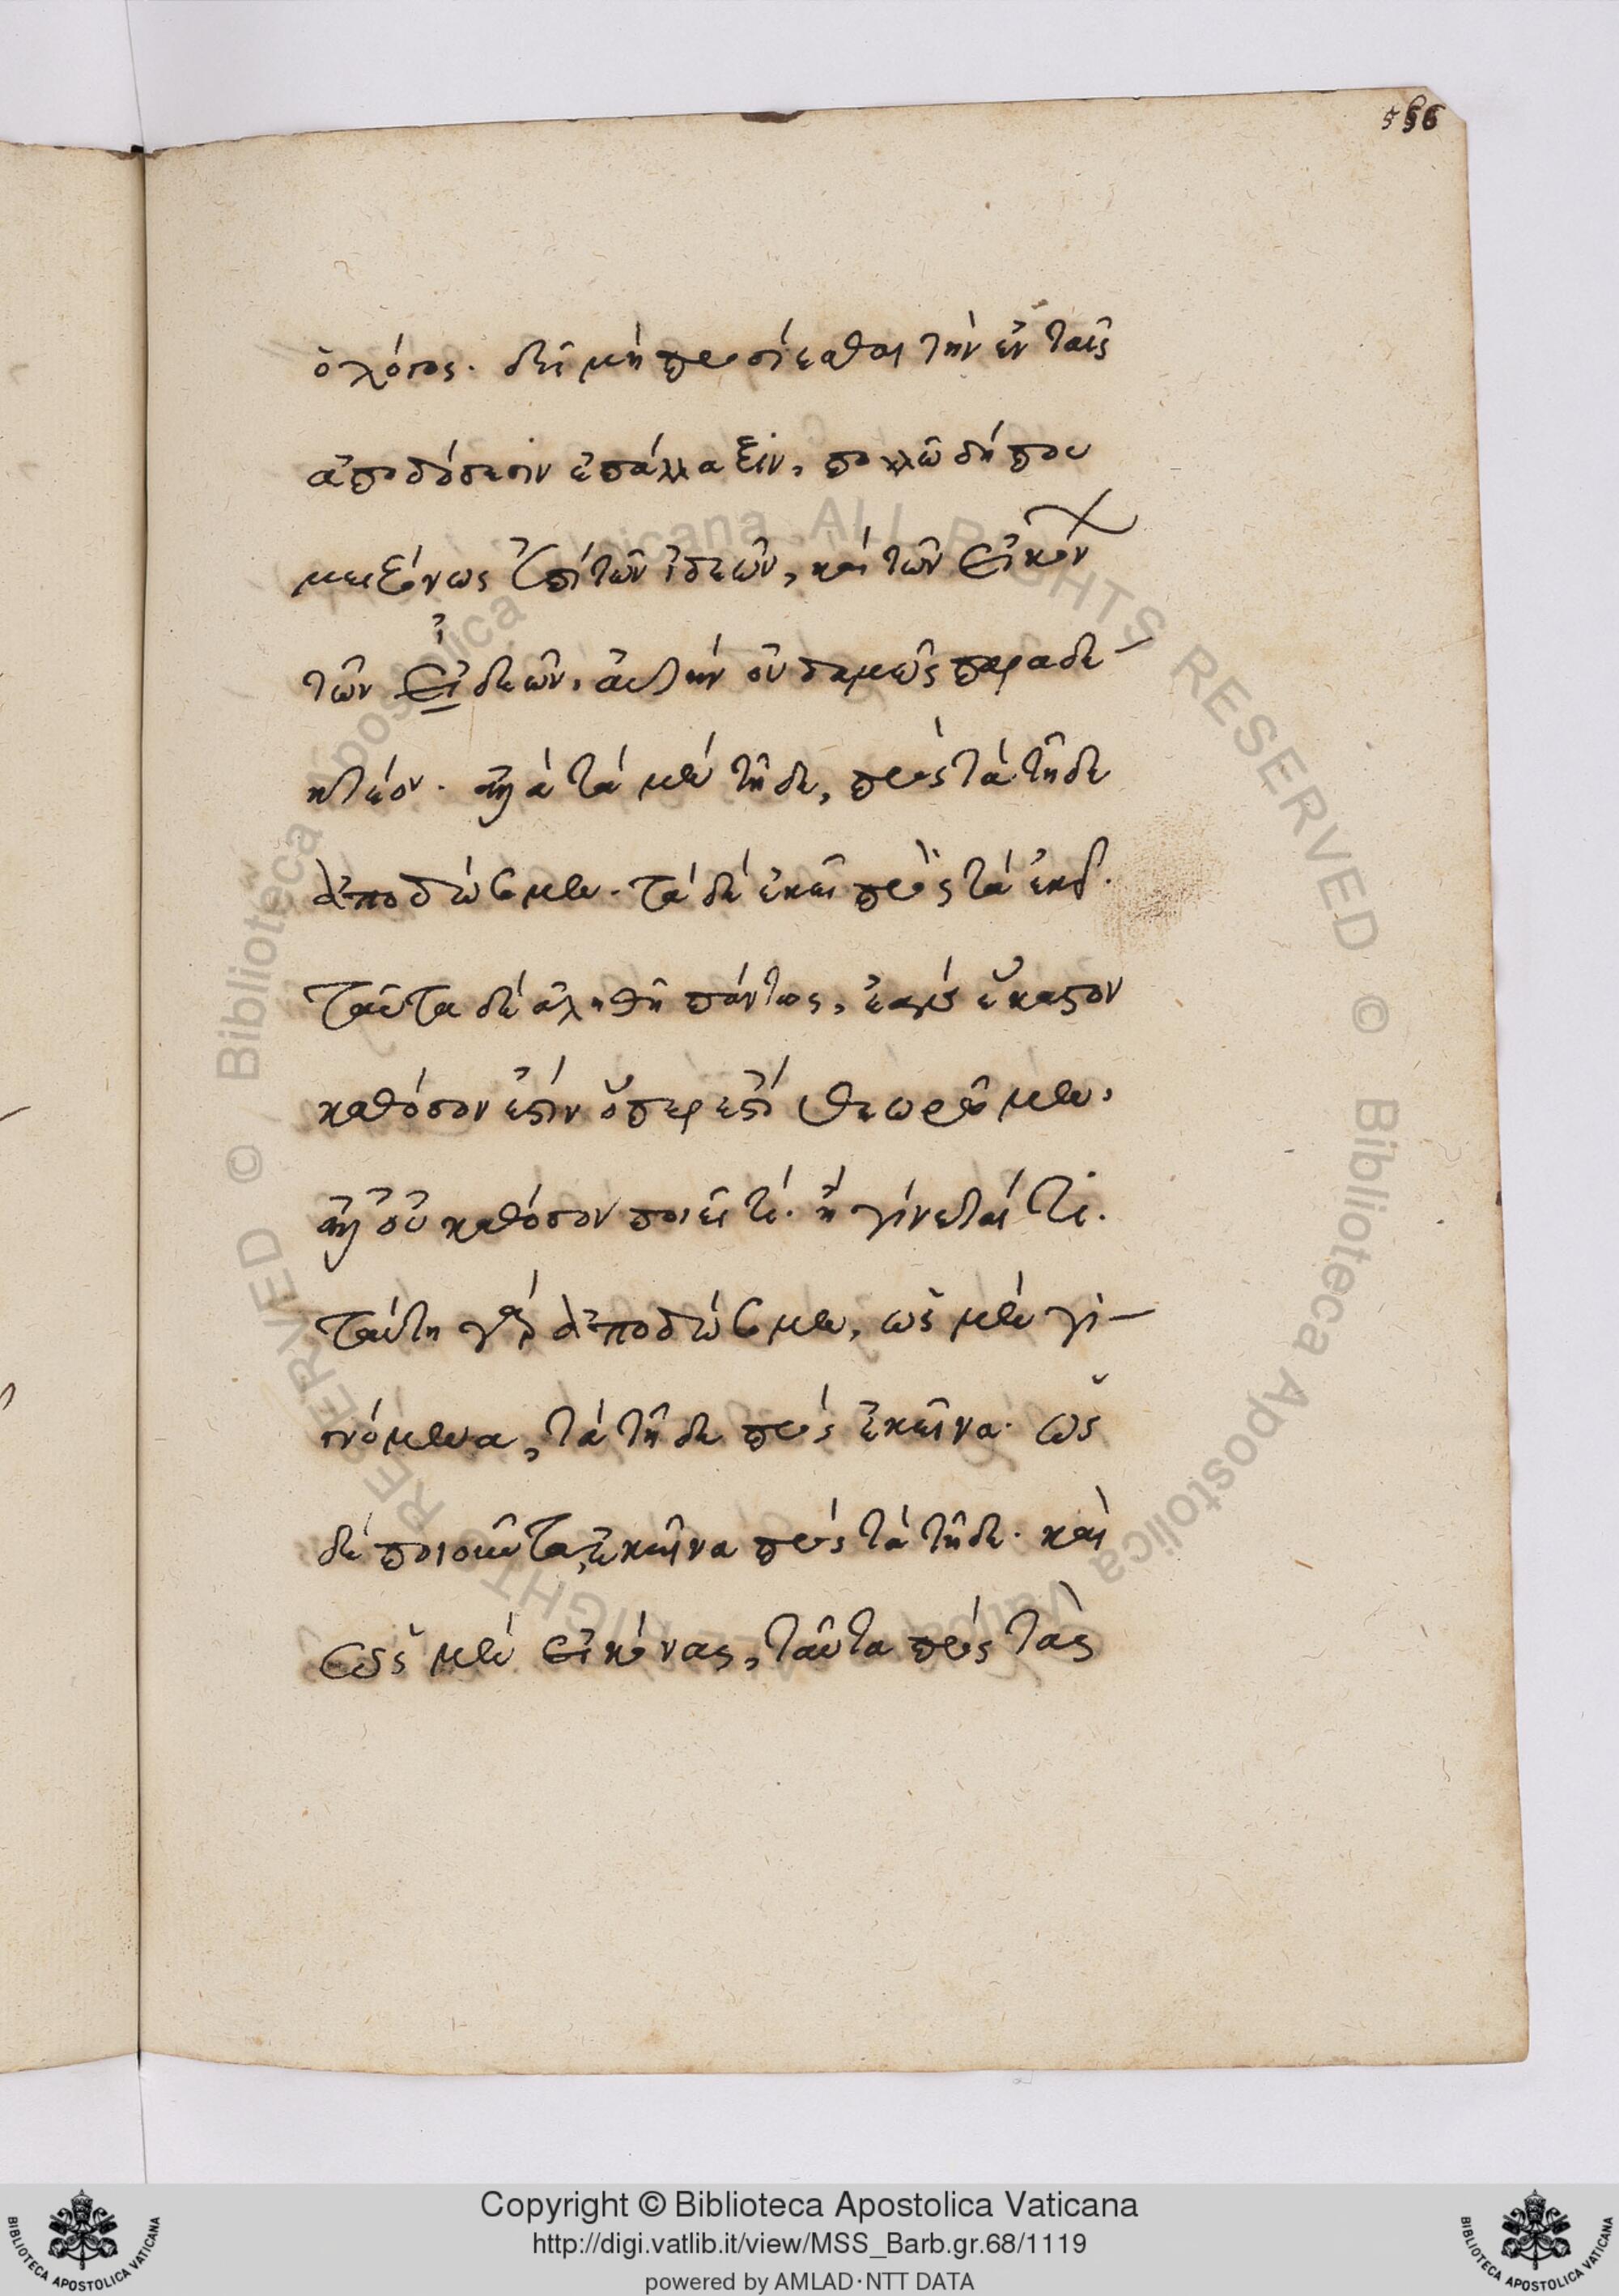 556
ὁ λόγος. δεῖ μὴ προσίεσθαι τὴν ἐν ταῖς
ἀποδόσεσιν ἐπάλλαξιν, πολλῶ δήπου
μειζόνως ἐπὶ τῶν ἰδεῶν, καὶ τῶν εἰκόνων
τῶν εἰδεῶν, αὐτὴν οὐδαμῶς παραδε-
κτέον. ἀλλὰ τὰ μὲν τῆδε, πρὸς τὰ τῆδε
ἀποδώσομεν. τὰ δὲ ἐκεῖ πρὸς τὰ ἐκεῖ.
ταῦτα δὲ ἀληθῆ πάντως, ἐὰν ἕκαστον
καθόσον ἐστὶν ὅπερ ἐστὶ θεωρῶμεν,
ἀλλ' οὐ καθόσον ποιεῖ τί. ἢ γίνεταί τι.
ταύτη γὰρ ἀποδώσομεν, ὡς μὲν γι-
νόμενα, τὰ τῆδε πρὸς ἐκεῖνα. ὡς
δὲ ποιοῦντα, ἐκεῖνα πρὸς τὰ τῆδε. καὶ
ὡς μὲν εἰκόνας, ταῦτα πρὸς τὰς
Biblioteca Apostolica Vaticana ALL RIGHTS RESERVED © Biblioteca Apostolica Vaticana ALL RIGHTS RESERVED ©
Copyright © Biblioteca Apostolica Vaticana
http://digi.vatlib.it/view/MSS_Barb.gr.68/1119
powered by AMLAD·NTT DATA
BIBLIOTECA APOSTOLICA VATICANA
BIBLIOTECA APOSTOLICA VATICANA